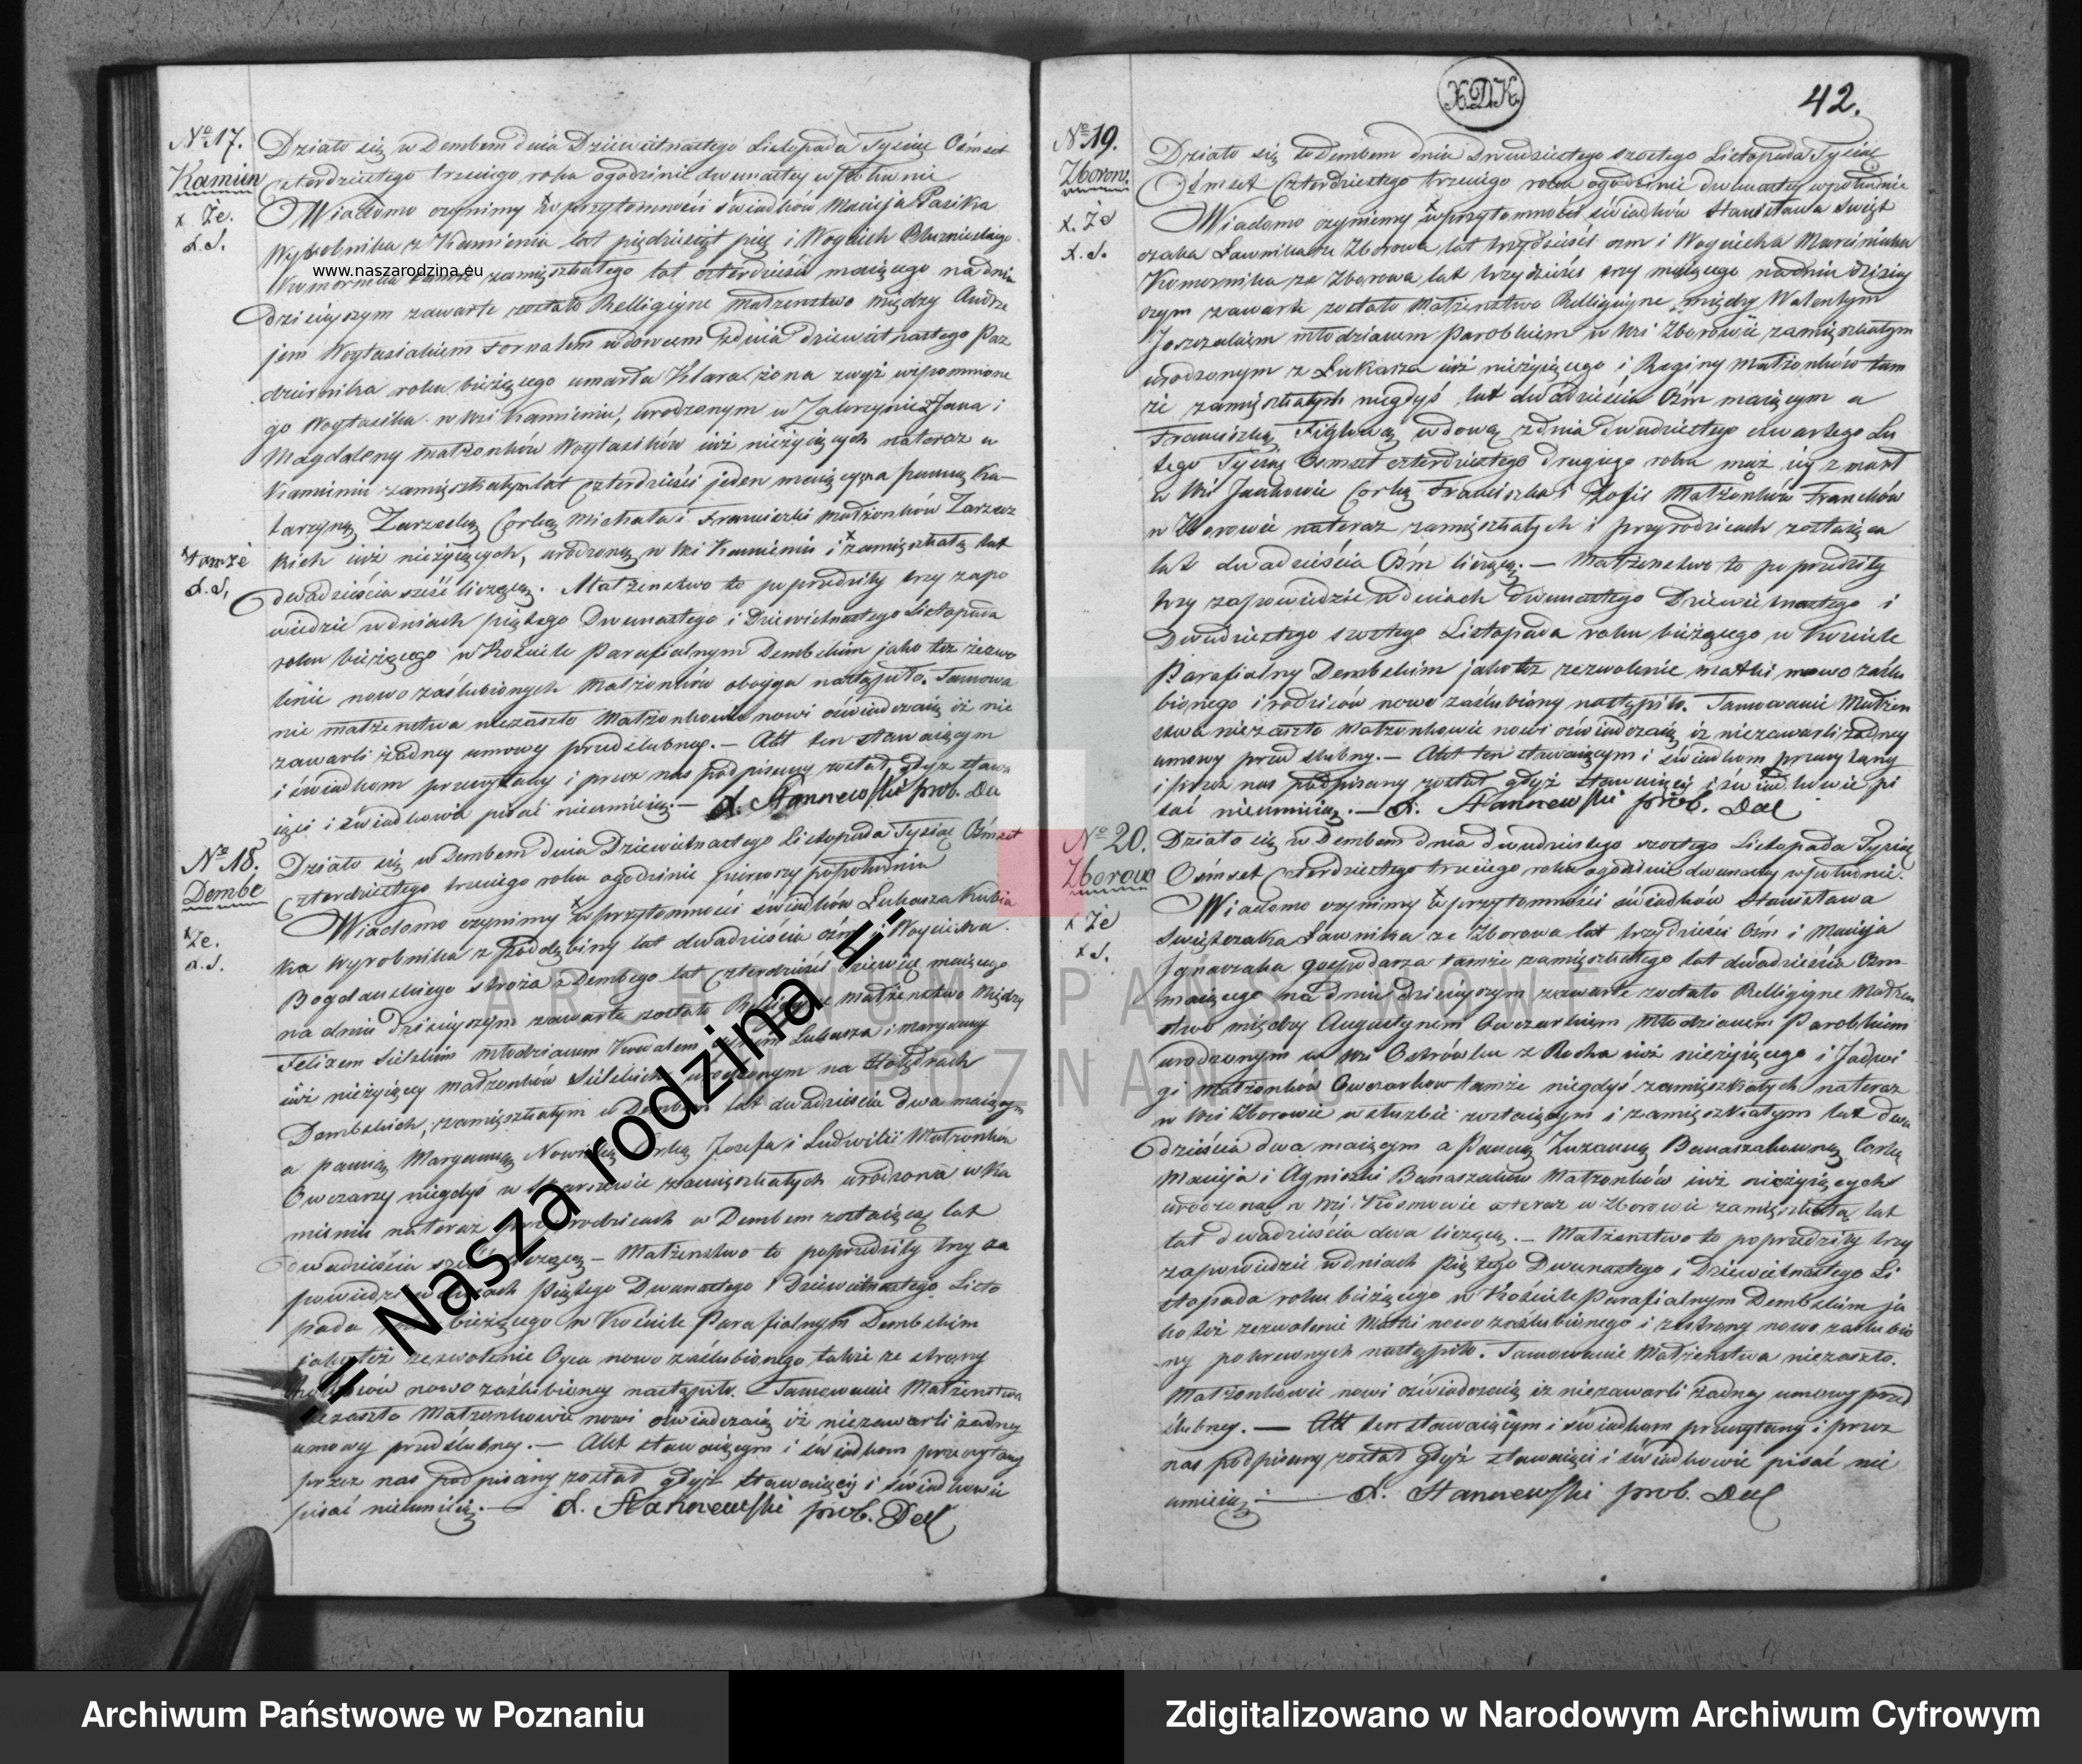 X.D.K.
42.
№ 17.
Kamien
x Że.
A.S.
Działo się w Dembem dnia Dziewietnastego Listopada Tysiąc Ośmset
Czterdziestego trzeciego roku ogodzinie dwunastey w Południe
Wiadomo czynimy w przytomności świadków Macieja Pasika
Wyrobnika z Kamienia lat pięćdziesiąt pięć i Woyciech
www.naszarodzina.eu
Komornika tamże zamięszkałego lat czterdzieści maiącego na dniu
dzisieyszym zawarte zostało Relligiyne małżenstwo między Andrze
jem Woytasiakiem Fornalem wdowcem zdnia dziewietnastego Paz
dziernika roku bieżącego umarła Klara żona zwyż wspomnione
go Woytasika we wsi Kamieniu, urodzonym w Jana i
Magdaleny małżonków Woytasików iuż nieżyiących nateraz w
Kamieniu zamięszkałym lat czterdzieści jeden maiącym a panną Ka-
tarzyną Zarzecką Corką Michała i Franciszki Małżonków Zarzec
kich iuż nieżyiących, urodzoną w wsi Kamieniu i zamięszkałą lat
x tamże
A.S.
dwadzieścia sześć liczącą. Małżenstwo to poprzedziły trzy zapo
wiedzie w dniach piątego Dwunastego i Dziewietnastego Listopada
roku bieżącego w Kościele Parafialnym Dembskim jako też zezwo
lenie nowo zaślubionych Małżonków oboyga nastąpiło. Tamowa
nie małżenstwa niezaszło Małżonkowie nowi oświadczaią iż nie
zawarli żadney umowy przedślubney. — Akt ten stawaiącym
i świadkom przeczytany i przez nas podpisany został, gdyż stawa
iący i świadkowie pisać nieumieią. — A. Stannewski prob. De
№ 18.
Dembe
x Że.
A.S.
Działo się w Dembem dnia Dziewietnastego Listopada Tysiąc Ośmset
Czterdziestego trzeciego roku ogodzinie pierwszy popołudniu
Wiadomo czynimy w przytomności świadków Łukasza Kubia
ka Wyrobnika z Poddębiny lat dwadzieścia ośm i Woyciecha
Bogdańskiego stroża z Dembego lat Czterdzieści dziewięć maiącego
na dniu dzisieyszym zawarte zostało Religiyne małżenstwo między
Felixem Sielskim młodzianem Kowalem synem Łukasza i Maryanny
iuż nieżyiący małżonków Sielskich urodzonym na Holędrach
Dembskich, zamięszkałym w Dembem lat dwadzieścia dwa maiącym
a panną Maryanną Corką Jozefa i Ludwiki Małżonków
Owczarzy niegdyś w Skarszewie zamięszkałych urodzona w Ka
mieniu nateraz przy rodzicach w Dembem zostaiącą lat
dwadzieścia liczącą — Małżenstwo to poprzedziły trzy za
powiedzi w dniach Piątego Dwunastego i Dziewietnastego Listo
pada roku bieżącego w Kościele Parafialnym Dembskim
jako też zezwolenie Oyca nowo zaślubionego, także ze strony
Rodziców nowo zaślubioney nastąpiło. Tamowanie Małżenstwa
niezaszło Małżonkowie nowi oświadczaią iż niezawarli żadney
umowy przedślubney. — Akt stawaiącym i świadkom przeczytany
przez nas podpisany został gdyż stawaiący i świadkowie
pisać nieumieią. — A. Stannewski prob. Del
№ 19.
Zborow.
x. Że
x. S.
Działo się w Dembem dnia Dwudziestego szostego Listopada Tysiąc
Ośmset Czterdziestego trzeciego roku ogodzinie dwunastey w południe
Wiadomo czynimy w przytomności świadków Stanisława Święt
czaka Ławnika ze Zborowa lat trzydzieści osm i Woyciecha Marciniaka
Komornika ze Zborowa lat trzydzieści trzy maiącego na dniu dzisiey
szym zawarte zostało Małżenstwo Relligiyne między Walentym
młodzianem Parobkiem w wsi Zborowie zamięszkałym
urodzonym z Łukasza iuż nieżyiącego i Reginy Małżonków tam
że zamięszkałych niegdyś lat dwadzieścia Ośm maiącym a
Franciszką wdową zdnia Dwudziestego czwartego Lu
tego Tysiąc Ośmset czterdziestego drugiego roku mąż iey zmarł
w Wsi Jankowie Corką Franciszka i Zofii Małżonków
w Zborowie nateraz zamięszkałych i przy rodzicach zostaiąca
lat dwadzieścia Ośm liczącą. — Małżenstwo to poprzedziły
trzy zapowiedzie w dniach Dwunastego Dziewietnastego i
Dwudziestego szostego Listopada roku bieżącego w Kościele
Parafialny Dembskim jako też zezwolenie matki nowo zaślu
bionego i rodziców nowo zaślubiony nastąpiło. Tamowanie Małżen
stwa niezaszło Małżonkowie nowi oświadczaią iż niezawarli żadney
umowy przedślubny. — Akt ten stawaiącym i świadkom przeczytany
i przez nas podpisany został gdyż stawaiący i świadkowie pi
sać nieumieią. — A. Stannewski prob. Del
№ 20.
Zborow
x Że
x S.
Działo się w Dembem dnia dwudziestego szostego Listopada Tysiąc
Ośmset Czterdziestego trzeciego roku ogodzinie dwunastey w południe.
Wiadomo czynimy w przytomności świadków Stanisława
Swiętczaka Ławnika ze Zborowa lat trzydzieści Ośm i Macieja
Ignaczaka gospodarza tamże zamięszkałego lat dwadzieścia Osm
maiącego na dniu dzisieyszym zawarte zostało Relligiyne Małżen
stwo między Augustynem Owczarkiem Młodzianem Parobkiem
urodzonym w wsi Ostrówku z Rocha iuż nieżyiącego i Jadwi
gi Małżonków Owczarkow tamże niegdyś zamięszkałych nateraz
w Wsi Zborowie w służbie zostaiącym i zamięszkałym lat dwa
dzieścia dwa maiącym a Panną Zuzanną Banaszakowną Corką
Macieja i Agniszki Banaszaków Małżonków iuż nieżyiących
urodzoną w wsi Kosmowie a teraz w Zborowie zamięszkałą lat
lat dwadzieścia dwa liczącą. — Małżenstwo to poprzedziły trzy
zapowiedzie w dniach Piątego Dwunastego i Dziewietnastego Li
stopada roku bieżącego w Kościele Parafialnym Dembskim ja
ko też zezwolenie Matki nowo zaślubionego i zestrony nowo zaślubio
ny pokrewnych nastąpiło. Tamowanie Małżenstwa niezaszło.
Małżonkowie nowi oświadczaią iż niezawarli żadney umowy przed
ślubney. — Akt ten stawaiącym i świadkom przeczytany i przez
nas podpisany został gdyż stawaiący i świadkowie pisać nie
umieią. — A. Stannewski prob. Del
-= Nasza rodzina =-
ARCHIWUM PAŃSTWOWE
W POZNANIU
Archiwum Państwowe w Poznaniu
Zdigitalizowano w Narodowym Archiwum Cyfrowym